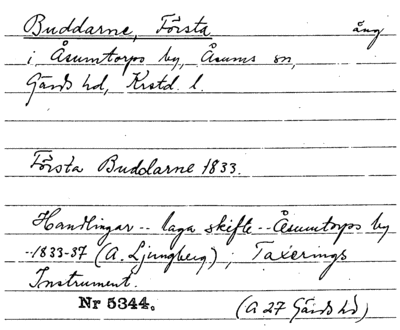 Buddarne, Första äng
i Åsumtorps by, Åsums sn,
Gärds hd, Krstd. l.
Första Buddarne 1833.
Handlingar -- laga skifte -- Åsumtorps by
--1833-37 (A. Ljungberg); Taxerings
Instrument.
Nr 5344. (A 27 Gärds hd)